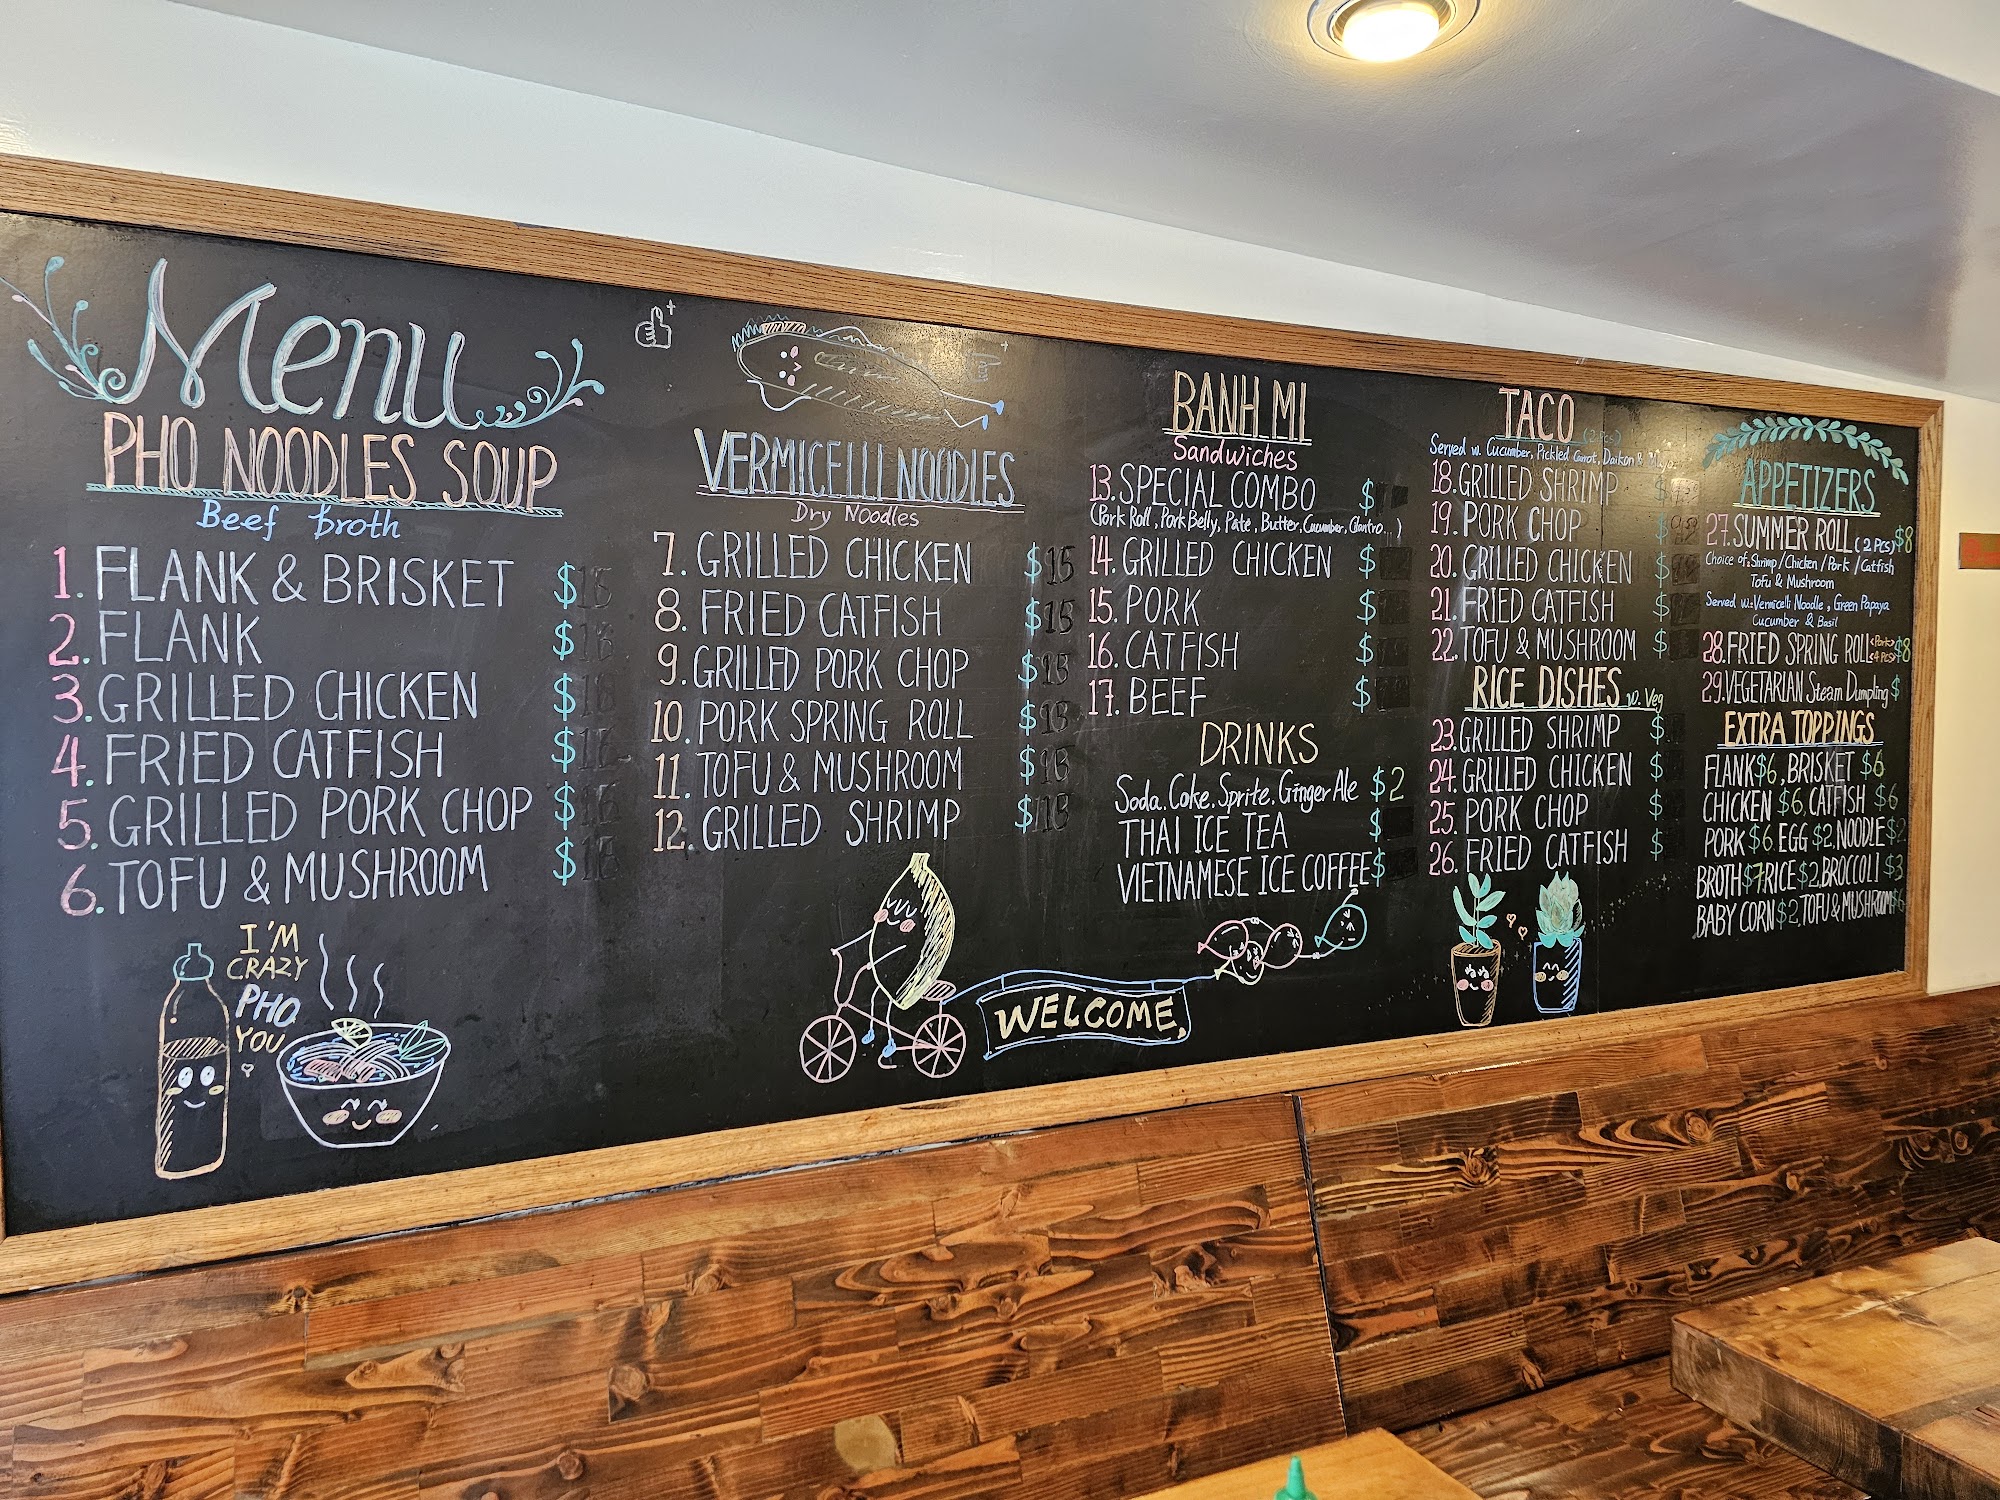 Menu
PHO NOODLES SOUP
Beef broth
1. FLANK & BRISKET $
2. FLANK $
3. GRILLED CHICKEN $
4. FRIED CATFISH $
5. GRILLED PORK CHOP $
6. TOFU & MUSHROOM $
I'M
CRAZY
PHO
YOU
VERMICELLI NOODLES
Dry Noodles
7. GRILLED CHICKEN $15
8. FRIED CATFISH $
9. GRILLED PORK CHOP $
10. PORK SPRING ROLL $
11. TOFU & MUSHROOM $
12. GRILLED SHRIMP $
WELCOME
BANH MI
Sandwiches
13. SPECIAL COMBO $
(Pork Roll, Pork Belly, Pate, Butter, Cucumber, Cilantro...)
14. GRILLED CHICKEN $
15. PORK $
16. CATFISH $
17. BEEF $
DRINKS
Soda. Coke. Sprite. Ginger Ale $2
THAI ICE TEA $
VIETNAMESE ICE COFFEE $
TACO (2 Pcs)
Served w. Cucumber, Pickled Carrot, Daikon & Mayo
18. GRILLED SHRIMP $
19. PORK CHOP $
20. GRILLED CHICKEN $
21. FRIED CATFISH $
22. TOFU & MUSHROOM $
RICE DISHES w. Veg
23. GRILLED SHRIMP $
24. GRILLED CHICKEN $
25. PORK CHOP $
26. FRIED CATFISH $
APPETIZERS
27. SUMMER ROLL (2 Pcs) $8
Choice of: Shrimp / Chicken / Pork / Catfish
Tofu & Mushroom
Served w: Vermicelli Noodle, Green Papaya
Cucumber & Basil
28. FRIED SPRING ROLL <Pork> <4 Pcs> $8
29. VEGETARIAN Steam Dumpling $
EXTRA TOPPINGS
FLANK $6, BRISKET $6
CHICKEN $6, CATFISH $6
PORK $6, EGG $2, NOODLE $2
BROTH $7 RICE $2, BROCCOLI $3
BABY CORN $2, TOFU & MUSHROOM $6